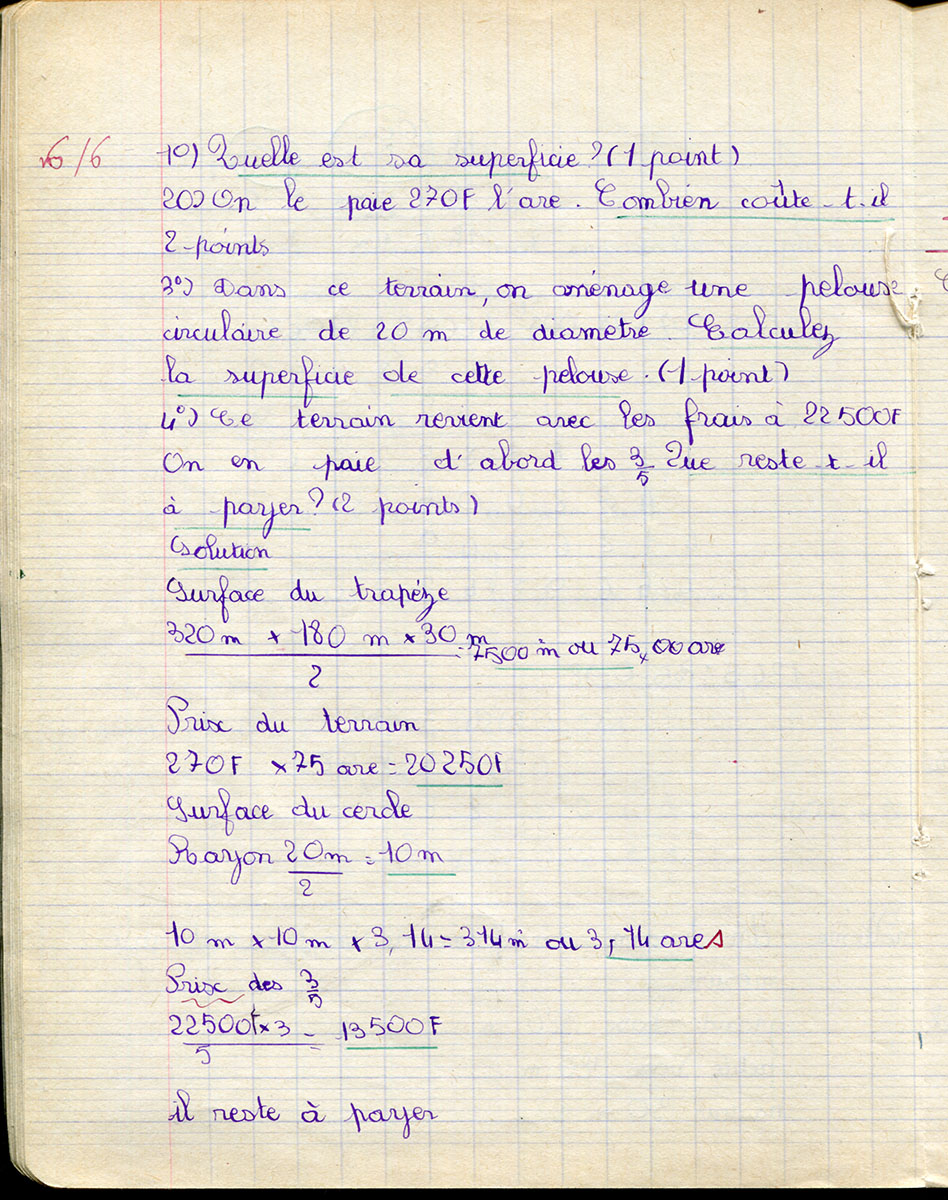 6/6
1o) Quelle est sa superficie ? (1 point)
2o) On le paie 270F l'are. Combien coûte-t-il
2 points
3o) Dans ce terrain, on aménage une pelouse
circulaire de 20 m de diamètre. Calculez
la superficie de cette pelouse. (1 point)
4o) Ce terrain revient avec les frais à 22500F
On en paie d'abord les 3/5 Que reste-t-il
à payer ? (2 points)
Solution
Surface du trapéze
320 m + 180 m × 30 m
2
= 7500 m² ou 75,00 are
Prix du terrain
270F × 75 are = 20250F
Surface du cercle
Rayon 20m = 10 m
2
10 m × 10 m × 3,14 = 314 m² ou 3,14 ares
Prix des 3/5
22500F × 3 = 13500F
5
il reste à payer